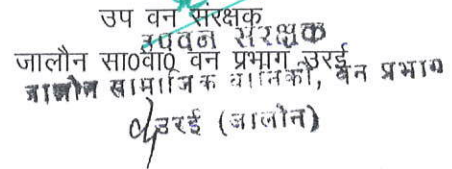 उप वन संरक्षक
उपवन संरक्षक
जालौन सा0वा0 वन प्रभाग उरई
जालौन सामाजिक वानिकी, वन प्रभाग
उरई (जालौन)